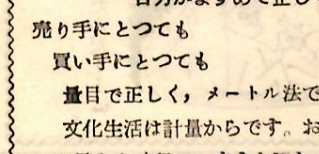 売り手にとつても
買い手にとつても
量目で正しく，メートル法で
文化生活は計量からです。お